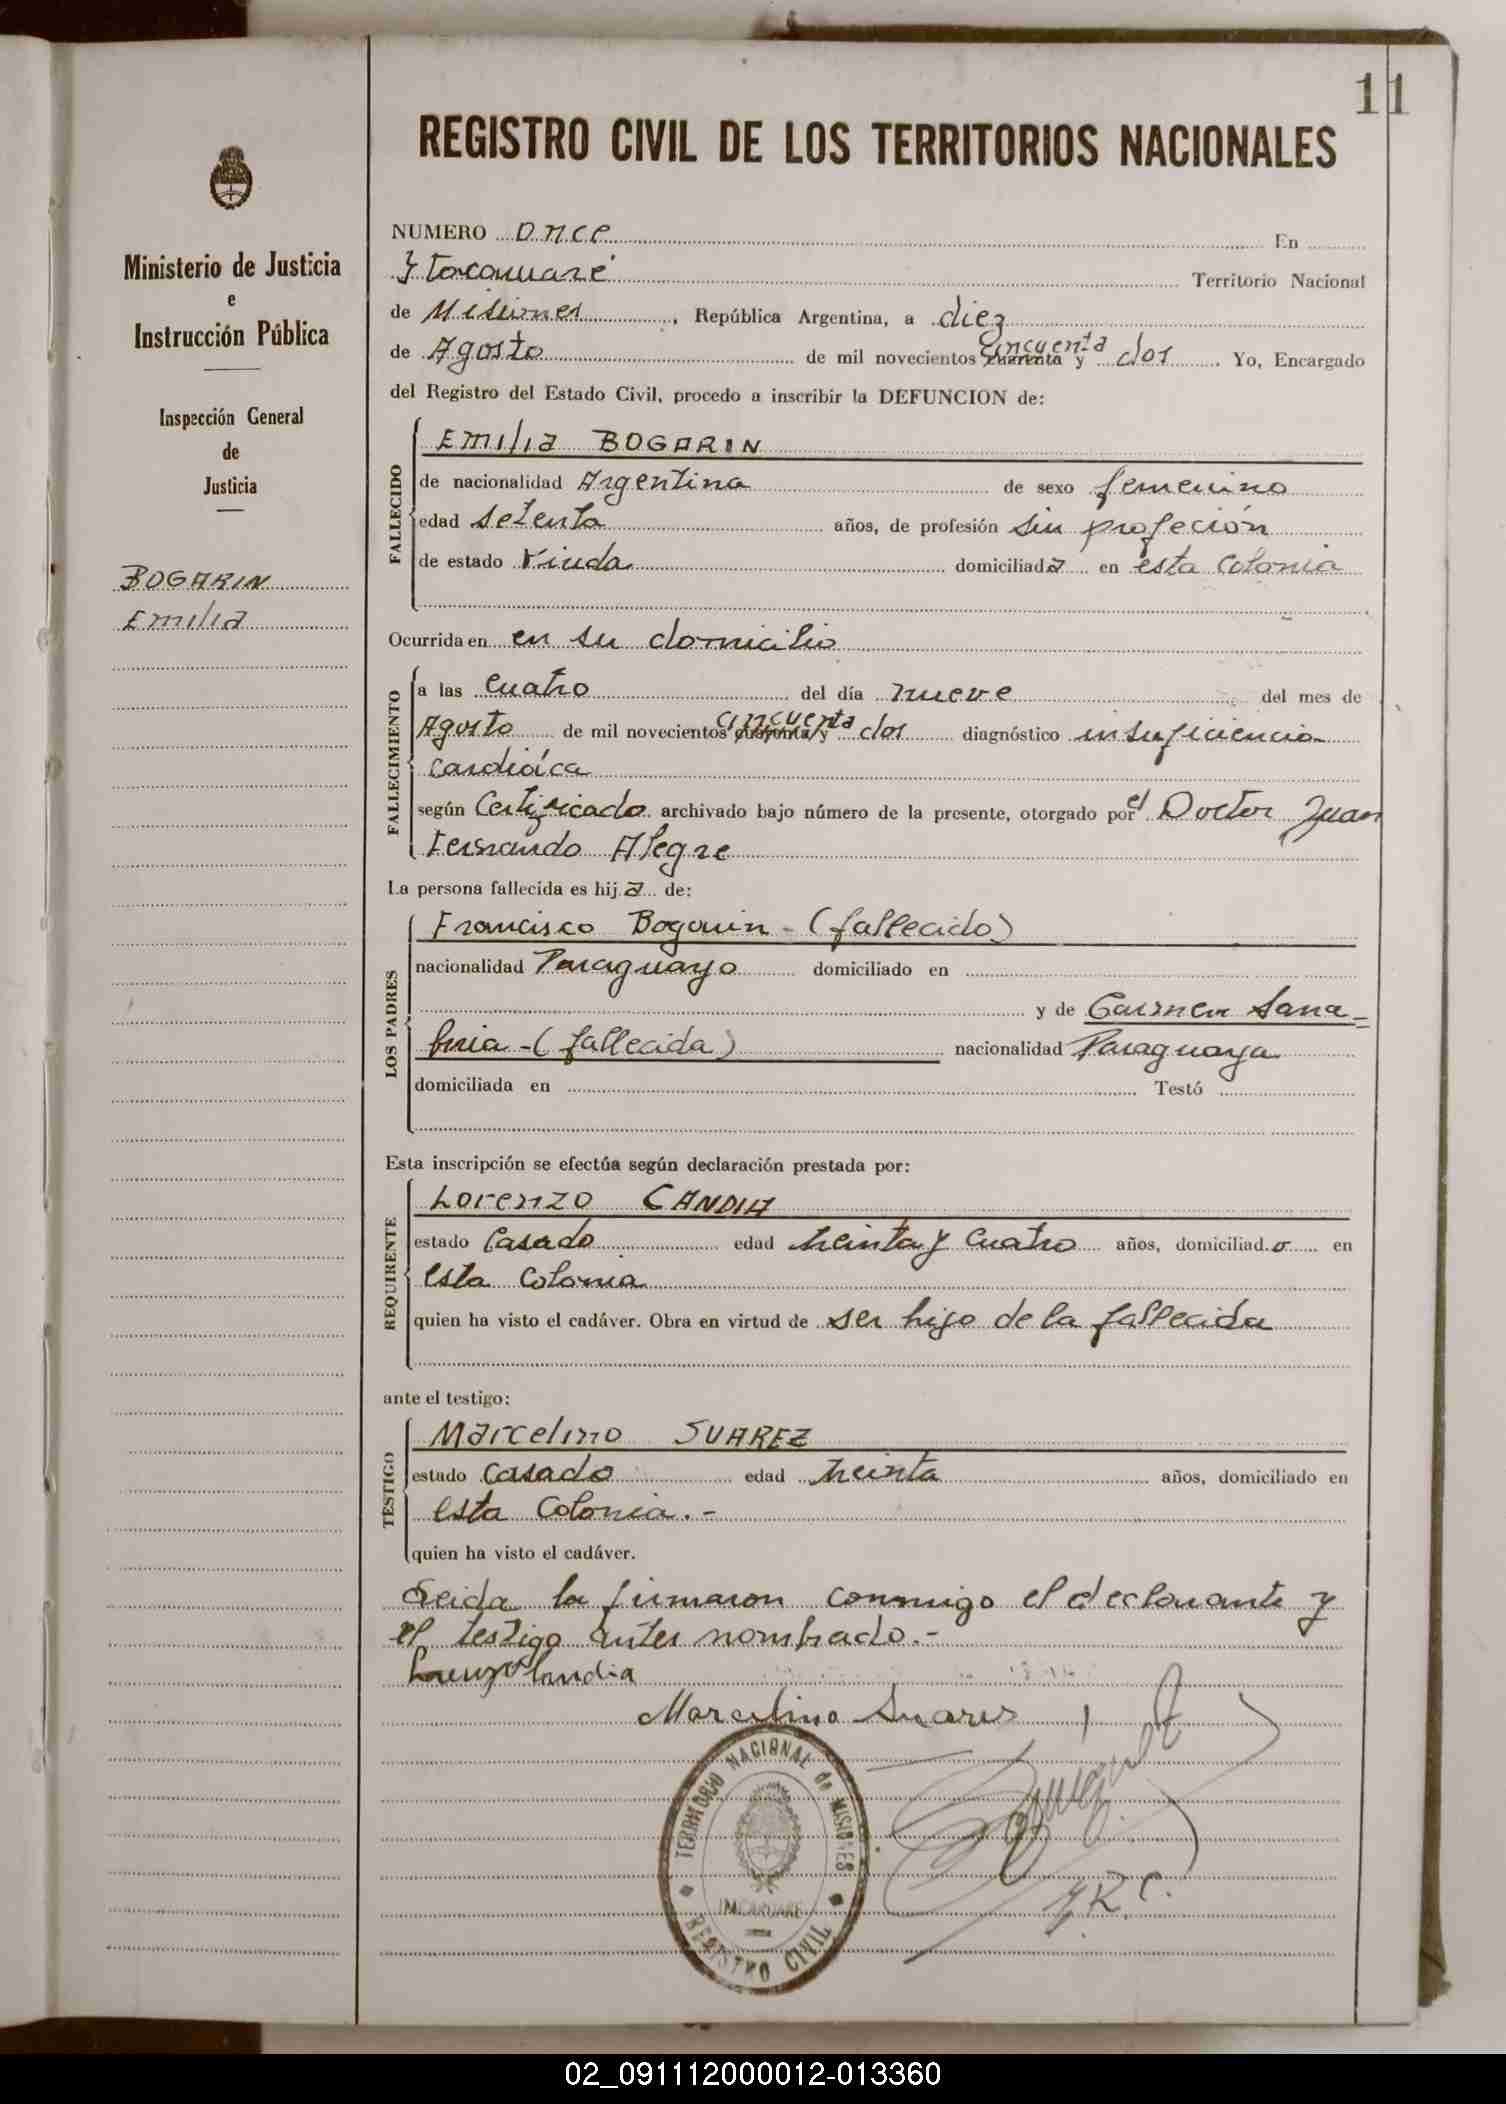 11
REGISTRO CIVIL DE LOS TERRITORIOS NACIONALES
Ministerio de Justicia
e
Instrucción Pública
Inspección General
de
Justicia
BOGARIN
Emilia
NUMERO once En
Ytacaruaré Territorio Nacional
de Misiones, República Argentina, a diez
de Agosto de mil novecientos cincuenta y dos. Yo, Encargado
del Registro del Estado Civil, procedo a inscribir la DEFUNCION de:
FALLECIDO
Emilia BOGARIN
de nacionalidad Argentina de sexo femenino
edad setenta años, de profesión sin profeción
de estado Viuda domiciliada en esta colonia
Ocurrida en en su domicilio
FALLECIMIENTO
a las cuatro del día nueve del mes de
Agosto de mil novecientos cincuenta y dos diagnóstico insuficiencia
cardiáca
según Certificado archivado bajo número de la presente, otorgado por el Doctor Juan
Fernando Alegre
La persona fallecida es hija de:
LOS PADRES
Francisco Bogarin - (fallecido)
nacionalidad Paraguayo domiciliado en
y de Carmen Sana-
bria - (fallecida) nacionalidad Paraguaya
domiciliada en Testó
Esta inscripción se efectúa según declaración prestada por:
REQUIRENTE
Lorenzo CANDIA
estado Casado edad treinta y cuatro años, domiciliado en
esta colonia
quien ha visto el cadáver. Obra en virtud de ser hijo de la fallecida
ante el testigo:
TESTIGO
Marcelino SUAREZ
estado casado edad treinta años, domiciliado en
esta Colonia.-
quien ha visto el cadáver.
Leida la firmaron conmigo el declarante y
el testigo antes nombrado.-
Lorenzo Candia
Marcelino Suares
J.R.C.
TERRITORIO NACIONAL de MISIONES
REGISTRO CIVIL
02_091112000012-013360